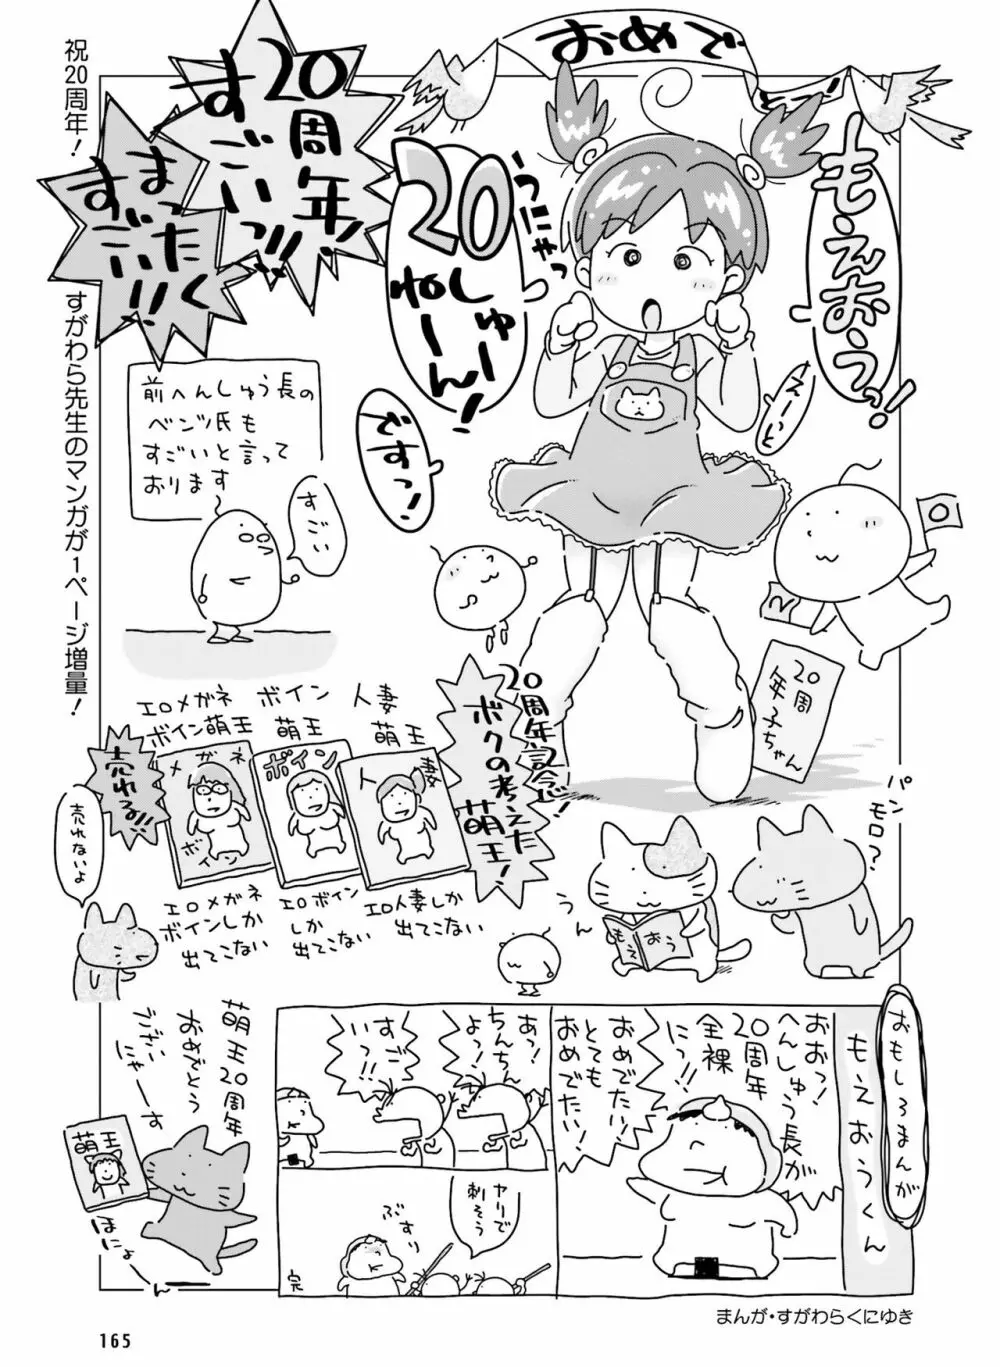 祝20周年！　すがわら先生のマンガが1ページ増量！
おめで
とっ！
もえおうっ！
えーいと
うにゃっ
20
しゅー
ねーん！
ですっ！
20周年！
すごいっ！！
まったく
すごい！！
前へんしゅう長の
ベンツ氏も
すごいと言って
おります
すごい
20周
年子ちゃん
20周年記念！
ボクの考えた
萌王！
人妻
萌王
ボイン
萌王
エロメガネ
ボイン萌王
人妻
ボイン
メガネ
ボイン
売れる！！
売れないよ
エロ人妻しか
出てこない
エロボイン
しか
出てこない
エロメガネ
ボインしか
出てこない
パン
モロ？
うん
もえ
おう
おもしろまんが
もえおうくん
おおっ！
へんしゅう長が
20周年
全裸
にっ！！
おめでたい！
とても
おめでたい！
あっ！
ちんちん
よっ！
すご
いっ！！
ヤリで
刺そう
ぶすり
完
萌王20周年
おめでとう
ございい
にゃーす
萌王
ほにょ
ん
まんが・すがわらくにゆき
165